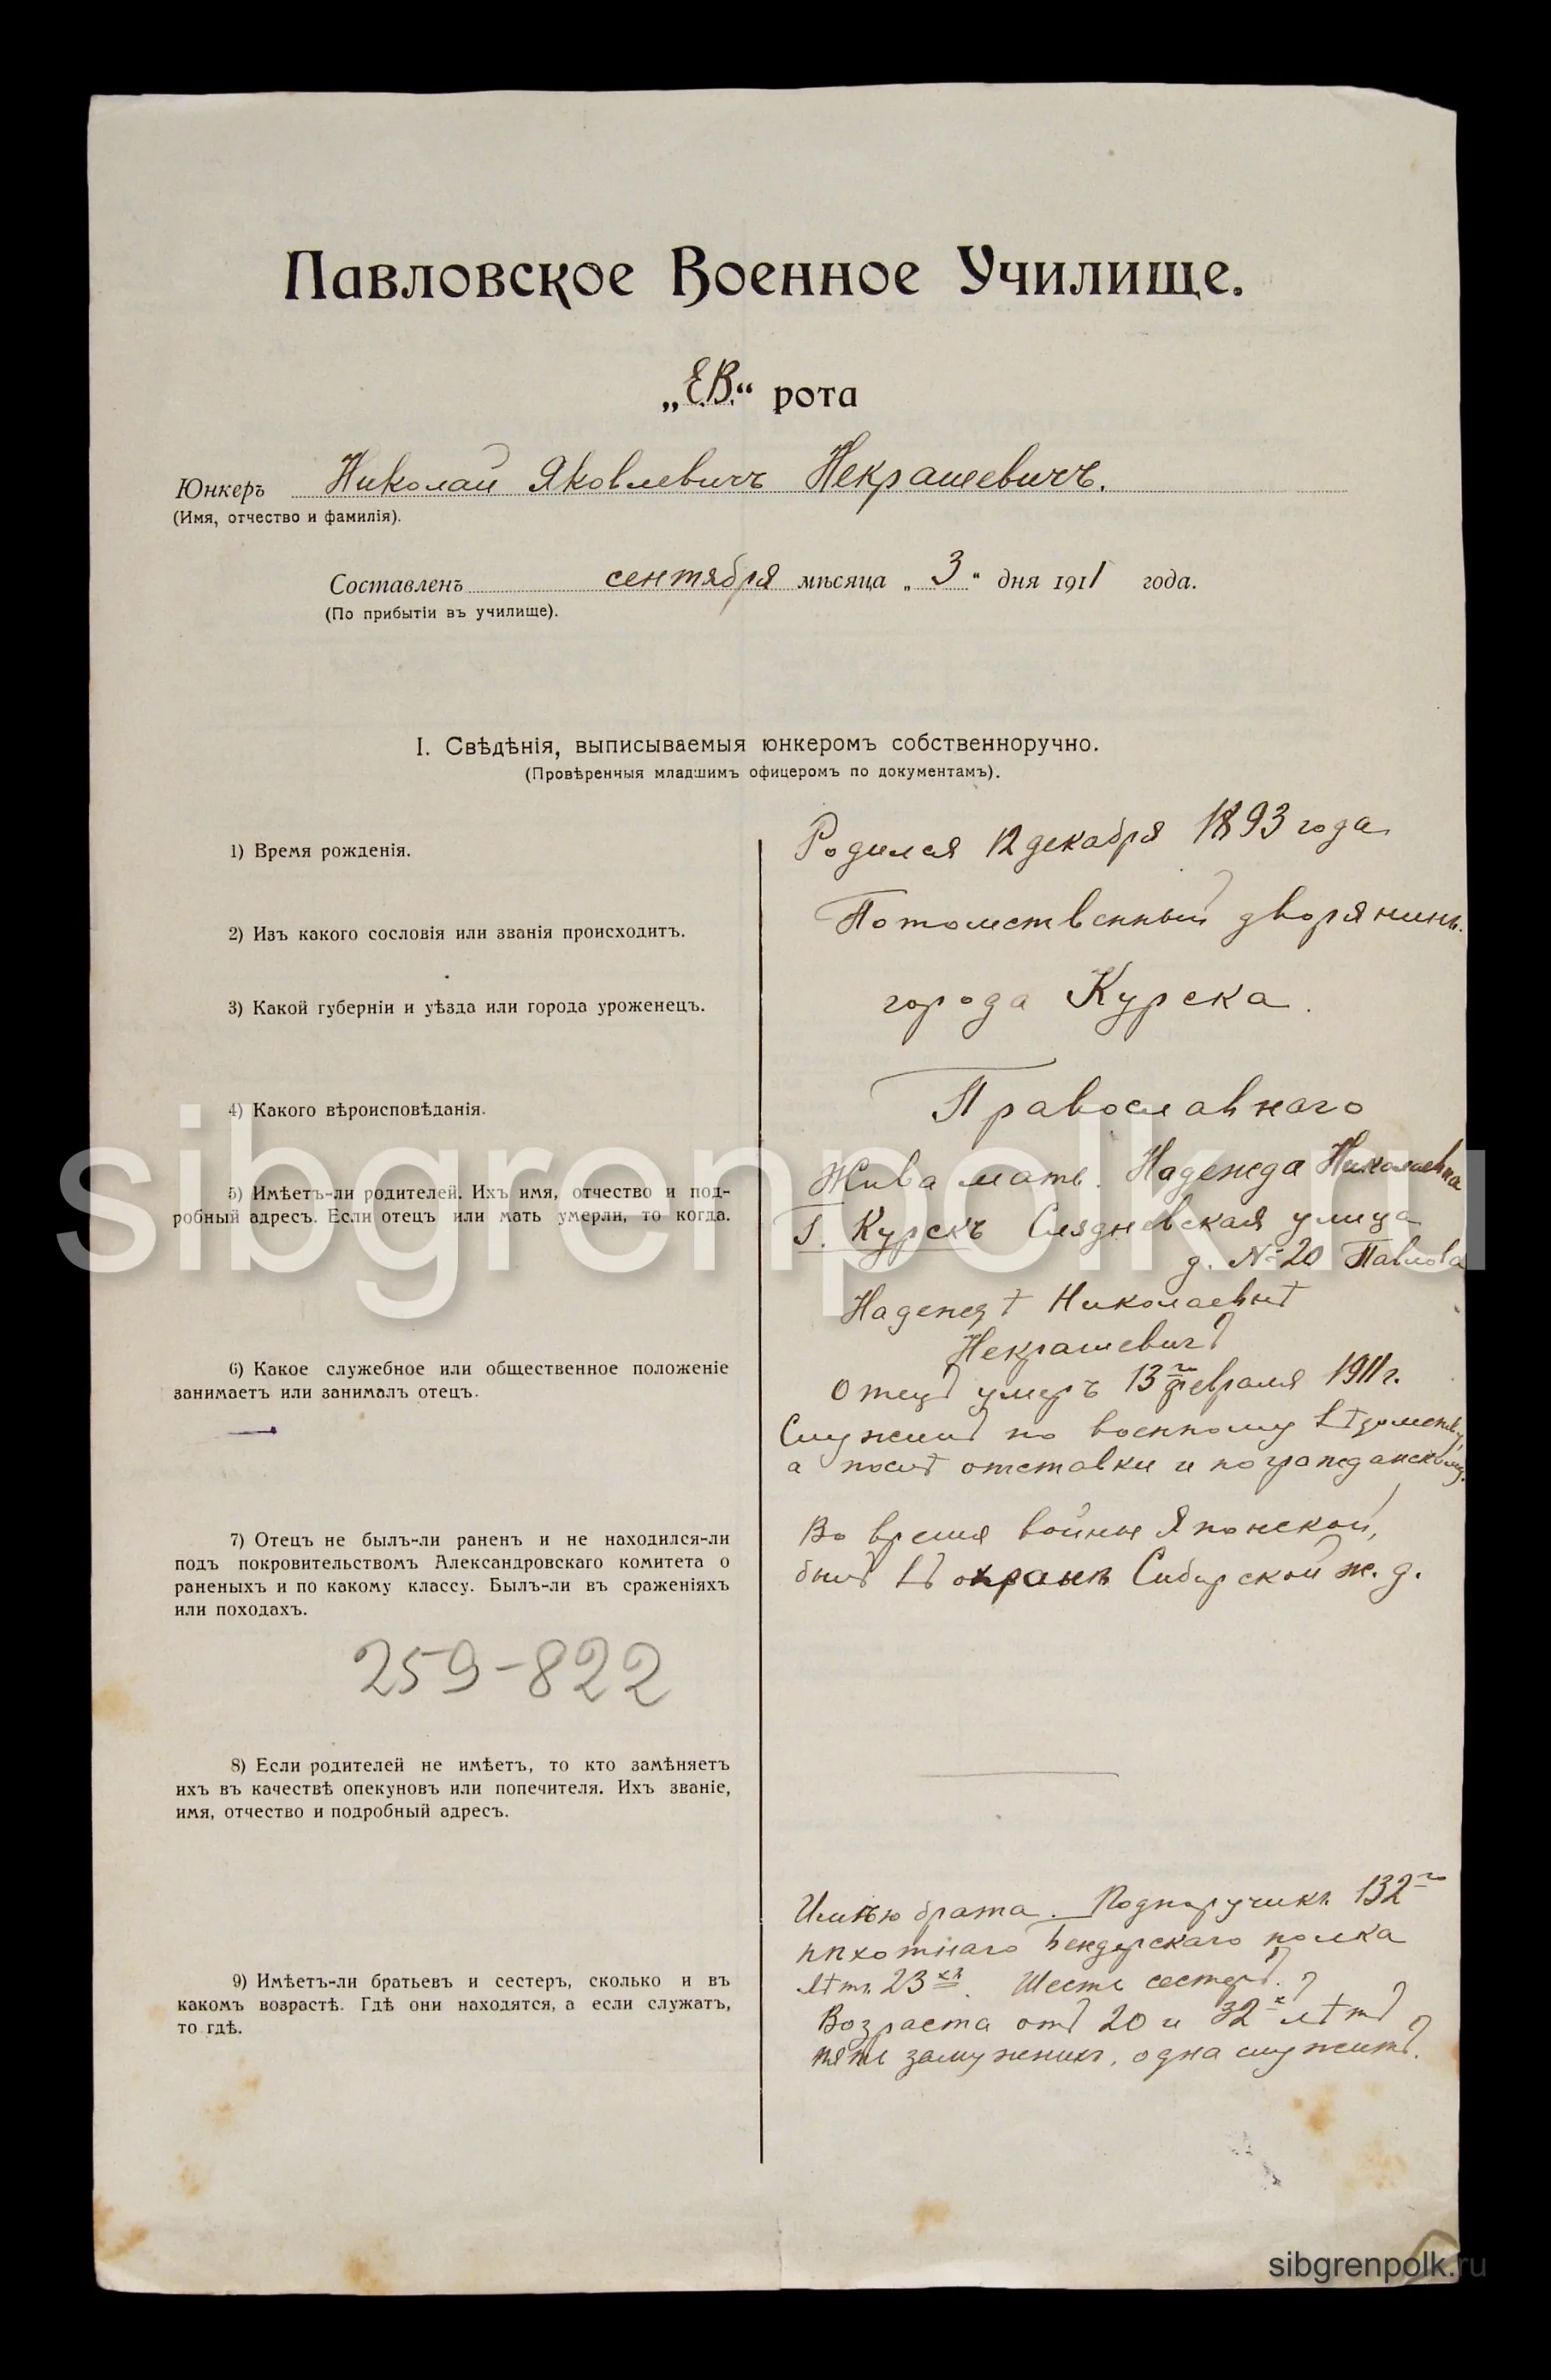 Павловское Военное Училище.
„Е.В.“ рота
Юнкеръ Николай Яковлевичъ Некрашевичъ.
(Имя, отчество и фамилія).
Составленъ сентября мѣсяца „3“ дня 1911 года.
(По прибытіи въ училище).
I. Свѣдѣнія, выписываемыя юнкеромъ собственноручно.
(Провѣренныя младшимъ офицеромъ по документамъ).
1) Время рожденія.
Родился 12 декабря 1893 года
2) Изъ какого сословія или званія происходитъ.
Потомственный дворянинъ.
3) Какой губерніи и уѣзда или города уроженецъ.
города Курска.
4) Какого вѣроисповѣданія.
Православнаго
5) Имѣетъ-ли родителей. Ихъ имя, отчество и под-
робный адресъ. Если отецъ или мать умерли, то когда.
Жива мать. Надежда Николаевна
Г. Курскъ улица
д. № 20 Павлова
Надеждѣ Николаевнѣ
Некрашевичъ
6) Какое служебное или общественное положеніе
занимаетъ или занималъ отецъ.
Отецъ умеръ 13го февраля 1911 г.
Служилъ по военному вѣдомству,
а послѣ отставки и по гражданскому.
7) Отецъ не былъ-ли раненъ и не находился-ли
подъ покровительствомъ Александровскаго комитета о
раненыхъ и по какому классу. Былъ-ли въ сраженіяхъ
или походахъ.
Во время войны Японской,
былъ въ охранѣ Сибирской ж. д.
259-822
8) Если родителей не имѣетъ, то кто замѣняетъ
ихъ въ качествѣ опекуновъ или попечителя. Ихъ званіе,
имя, отчество и подробный адресъ.
9) Имѣетъ-ли братьевъ и сестеръ, сколько и въ
какомъ возрастѣ. Гдѣ они находятся, а если служатъ,
то гдѣ.
Имѣю брата. Подпоручикъ 132го
пѣхотнаго Бендерскаго полка
лѣтъ 23хъ. Шесть сестеръ.
Возраста отъ 20 и 32х лѣтъ
пять замужнихъ, одна служитъ.
sibgrenpolk.ru
sibgrenpolk.ru